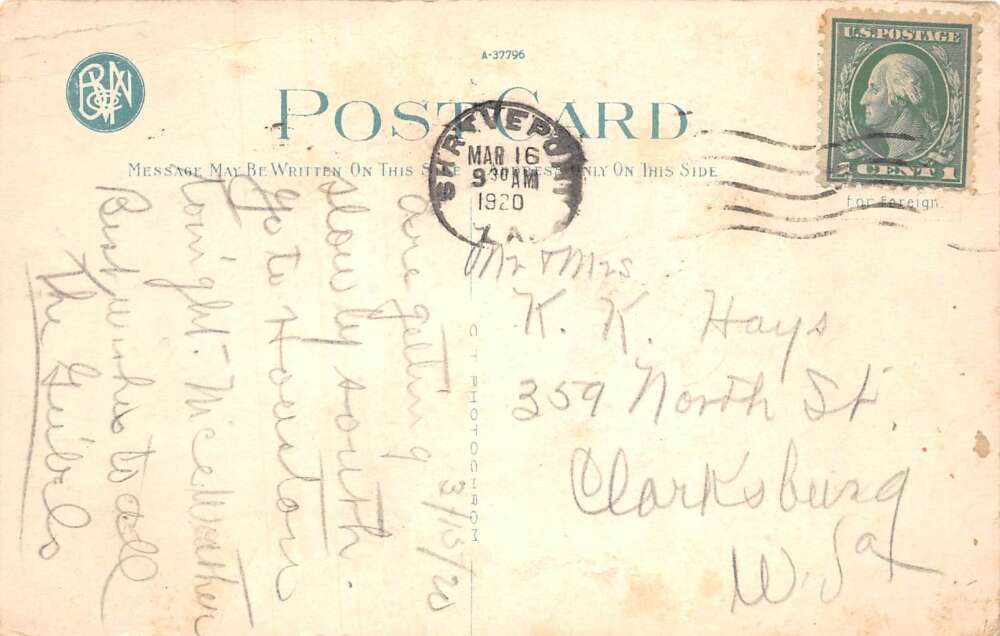 A-37796
POST CARD
MESSAGE MAY BE WRITTEN ON THIS SIDE ADDRESS ONLY ON THIS SIDE
SHREVEPORT
MAR 16
9 30 AM
1920
LA.
U.S. POSTAGE
1 CENT 1
For Foreign.
3/15/20
Are getting
slowly south.
Go to Houston
tonight. Nice Weather
Best wishes to all
The
Mr & Mrs
K. K. Hays
359 North St.
Clarksburg
W. Va
C T PHOTOCHROM